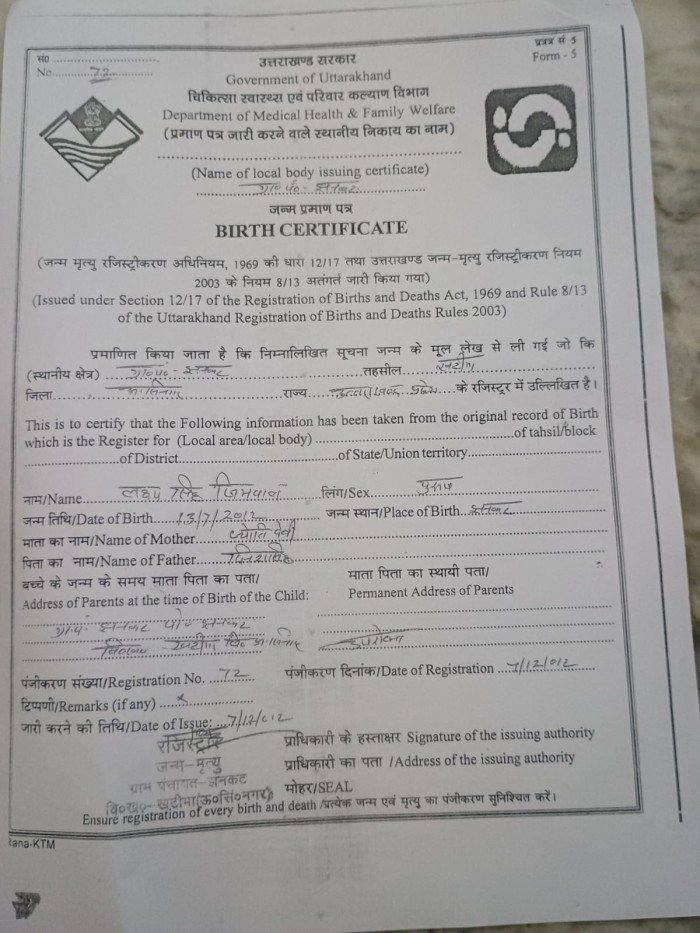 सं०
प्रपत्र सं 5
No. 72
Form - 5
उत्तराखण्ड सरकार
Government of Uttarakhand
चिकित्सा स्वास्थ्य एवं परिवार कल्याण विभाग
Department of Medical Health & Family Welfare
(प्रमाण पत्र जारी करने वाले स्थानीय निकाय का नाम)
(Name of local body issuing certificate)
ग्रा० पं०-झनकट
जन्म प्रमाण पत्र
BIRTH CERTIFICATE
(जन्म मृत्यु रजिस्ट्रीकरण अधिनियम, 1969 की धारा 12/17 तथा उत्तराखण्ड जन्म-मृत्यु रजिस्ट्रीकरण नियम
2003 के नियम 8/13 अतंगर्त जारी किया गया)
(Issued under Section 12/17 of the Registration of Births and Deaths Act, 1969 and Rule 8/13
of the Uttarakhand Registration of Births and Deaths Rules 2003)
प्रमाणित किया जाता है कि निम्नालिखित सूचना जन्म के मूल लेख से ली गई जो कि
(स्थानीय क्षेत्र) ग्रा० पं०-झनकट तहसील खटीमा
जिला राज्य उत्तराखण्ड प्रदेश के रजिस्ट्रर में उल्लिखित है।
This is to certify that the Following information has been taken from the original record of Birth
which is the Register for (Local area/local body) of tahsil/block
of District of State/Union territory
नाम/Name सिंह लिंग/Sex पुरुष
जन्म तिथि/Date of Birth जन्म स्थान/Place of Birth झनकट
माता का नाम/Name of Mother ज्योति देवी
पिता का नाम/Name of Father
बच्चे के जन्म के समय माता पिता का पता/
माता पिता का स्थायी पता/
Address of Parents at the time of Birth of the Child:
Permanent Address of Parents
ग्राम झनकट पो० झनकट
खटीमा उपरोक्त
पंजीकरण संख्या/Registration No. 72 पंजीकरण दिनांक/Date of Registration 7/12/012
टिप्पणी/Remarks (if any) x
जारी करने की तिथि/Date of Issue: 7/12/012
रजिस्ट्रार
प्राधिकारी के हस्ताक्षर Signature of the issuing authority
जन्म-मृत्यु
प्राधिकारी का पता /Address of the issuing authority
ग्राम पंचायत-झनकट
मोहर/SEAL
वि०ख०-खटीमा(ऊ०सिं०नगर)
Ensure registration of every birth and death /प्रत्येक जन्म एवं मृत्यु का पंजीकरण सुनिश्चित करें।
Rana-KTM